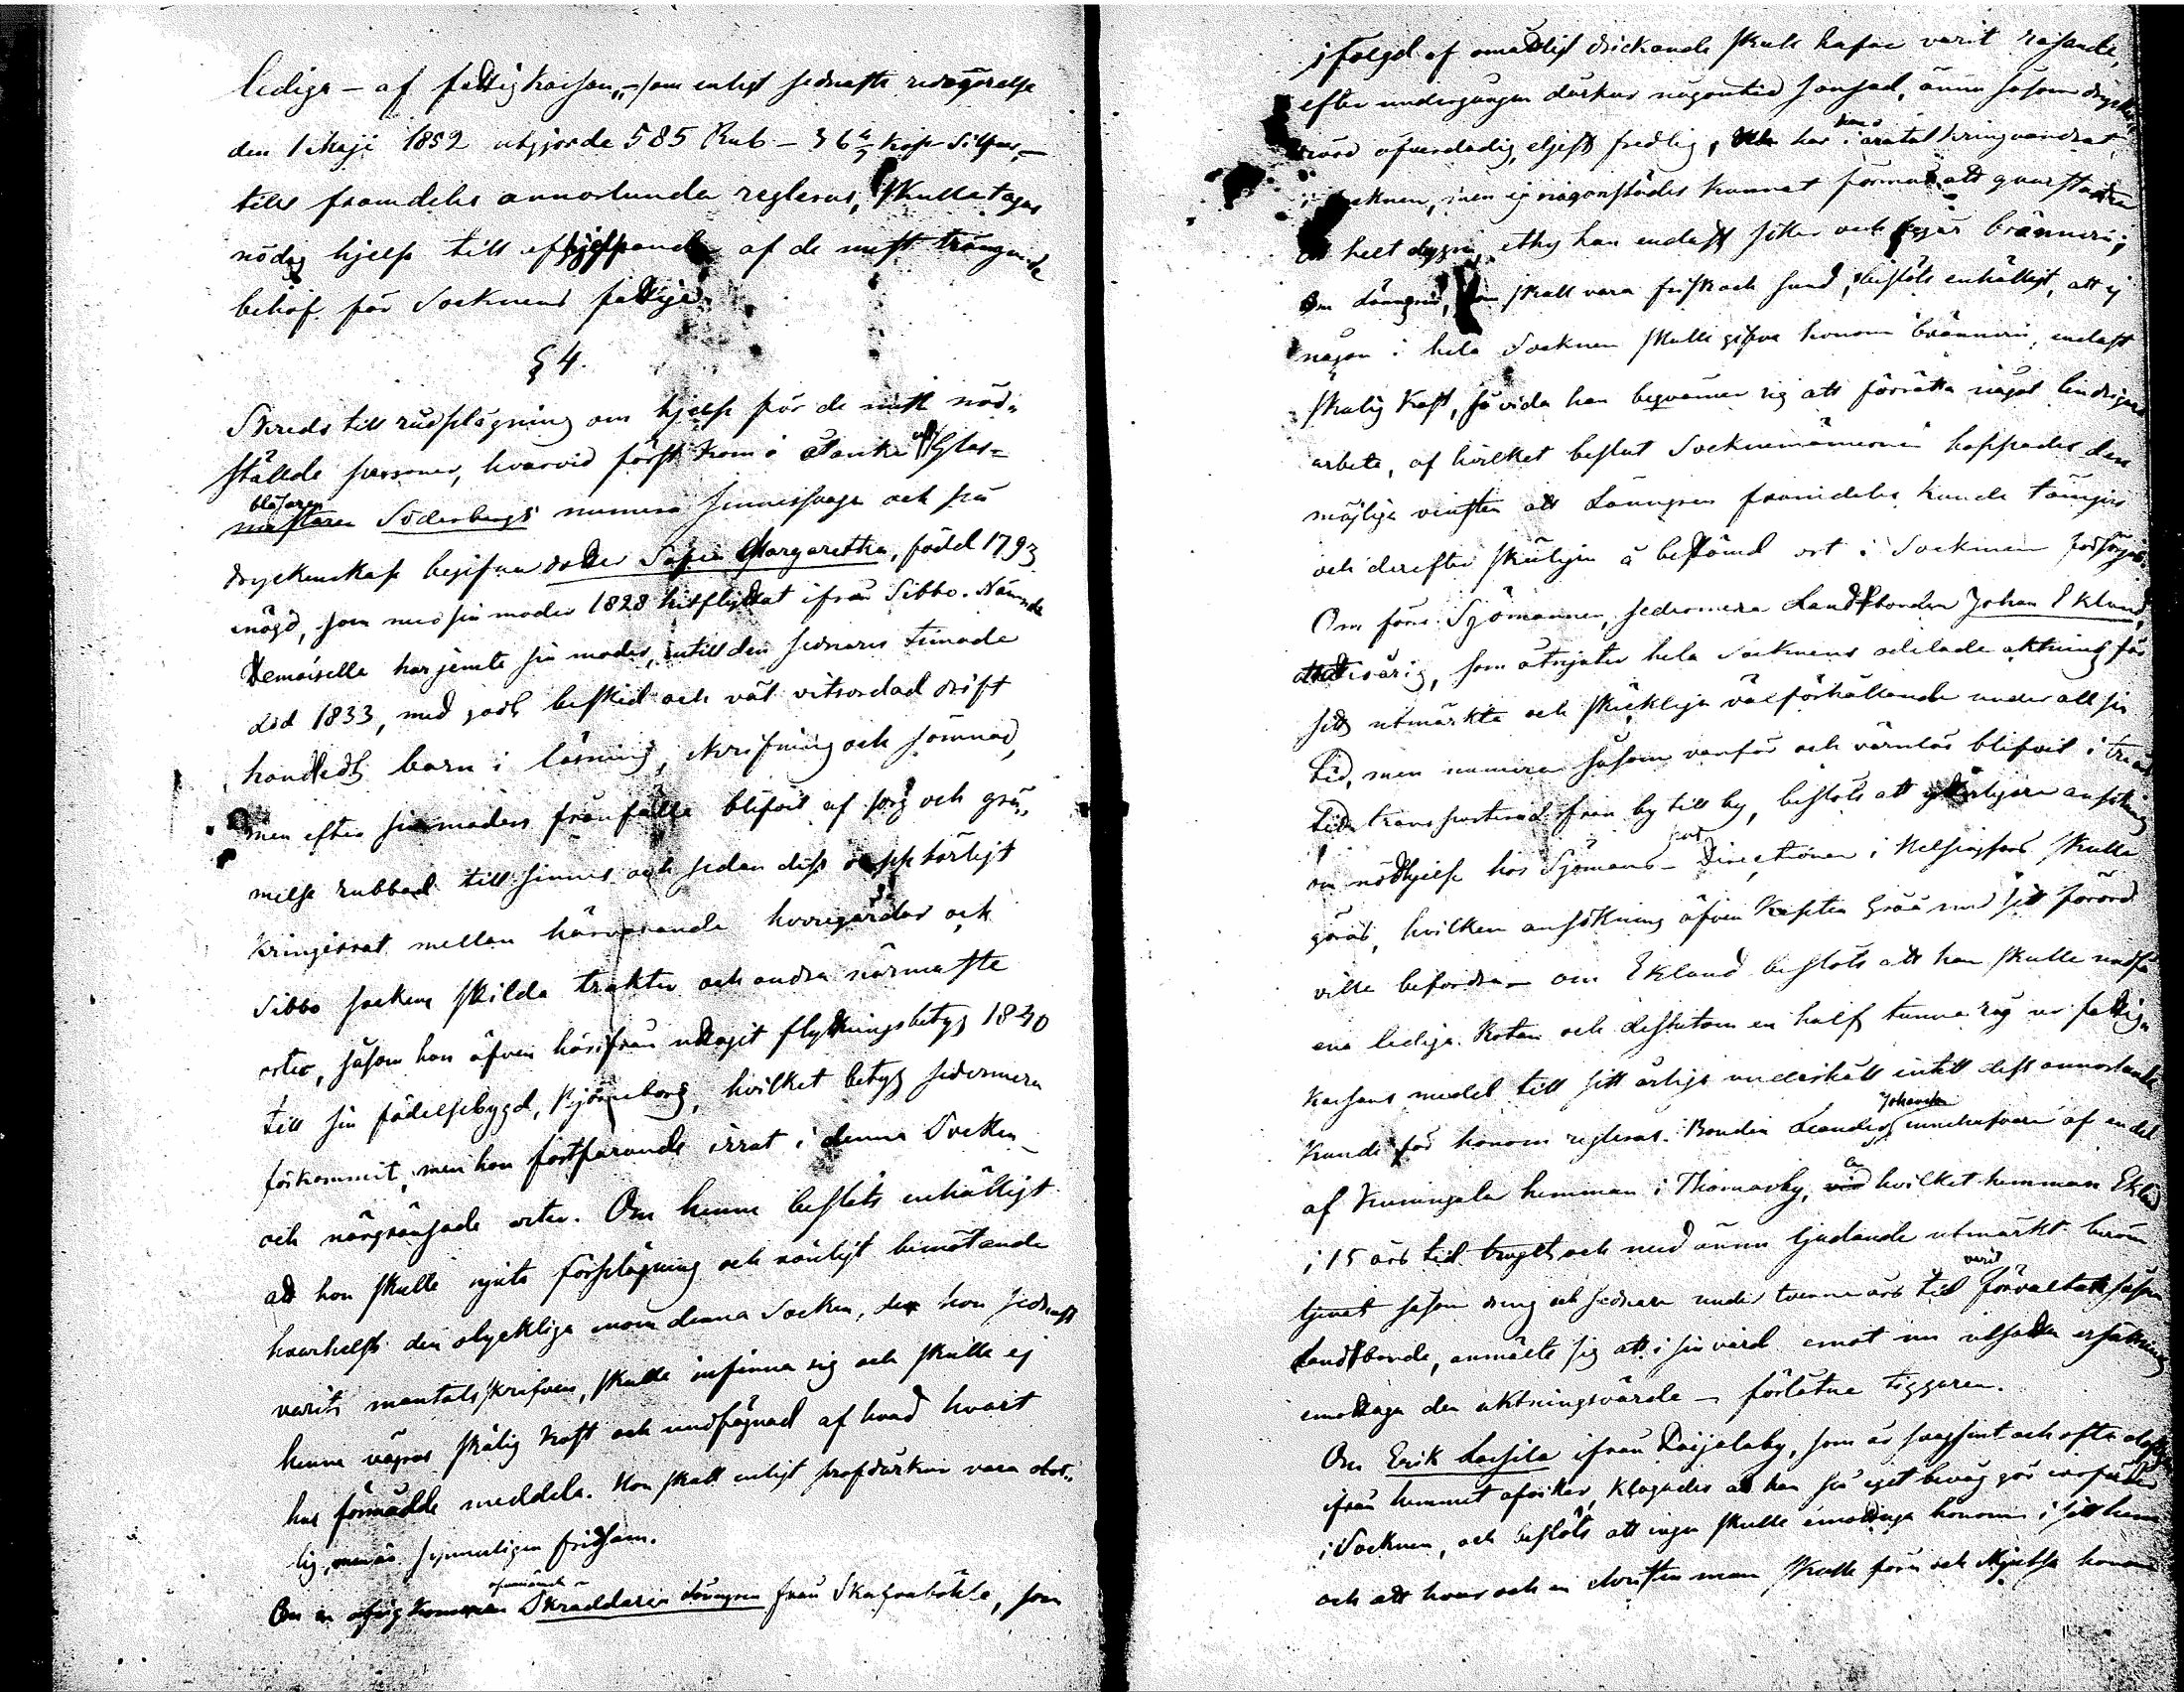 lediga – af fattigkassan, – som enligt sednaste redogörelse
den 1 Maji 1852 utgjorde 585 Rub – 36 4/7 kop Silfver, –
tills framdeles annorlunda regleras, skulle tagas
nödig hjelp till afhjelpande af de mest trängande
behof för Socknens fattige.
§ 4.
Skreds till rådplägning om hjelp för de mest nöd-
ställde personer, hvarvid först kom i åtanke Glas-
blåsaren
mästaren Söderbergs numera sinnessvaga och på
dryckenskap begifna dotter Sofia Margaretha, född 1793
som med sin moder 1828 hitflyttat ifrån Sibbo. Nämnde
Demoiselle har jemte sin moder, intill den sednares timade
död 1833, med godt besked och väl vitsordad drift
handledt barn i läsning, skrifning och sömnad,
men efter sin moders frånfälle blifvit af sorg och grä-
melse rubbad till sinnes och sedan dess oupphörligt
kringirrat mellan härvarande herregårdar och
Sibbo sockens skilda trakter och andra närmaste
orter, såsom hon äfven härifrån uttagit flyttningsbetyg 1840
till sin födelsebygd, Björneborg, hvilket betyg sedermera
förkommit, men hon fortfarande irrat i denna Socken
och närgränsade orter. Om henne beslöts enhälligt
att hon skulle njuta förplägning och vänligt bemötande
hvarhelst den olyckliga inom denna Socken, der hon sednast
varit mantalsskrifven, skulle infinna sig och skulle ej
henne vägras skälig kost och undfägnad af hvad hvart
hus förmådde meddela. Hon skall enligt prof därhos vara obot-
lig, men är synnerligen fridsam.
Om en Skräddaren Lönngren från Skafvaböhle, som
i följd af omåttligt drickande skall hafva varit rasande,
efter undergången någontid fånsad, ännu såsom drycken-
öfverdådig, eljest fredlig, har i åratal kringvandrat
i Socknen, men ej någonstädes kunnat förmås att qvarstadna
ett helt dygn, ethy han endast söker och begär brännvin;
Om Lönngren, som skall vara frisk och sund, beslöts enhälligt, att ej
någon i hela Socknen skulle gifva honom brännvin, endast
skälig kost, så vida han beqvämer sig att förrätta något lindrigare
arbete, af hvilket beslut Sockenemännerne hoppades den
möjliga vinsten att Lönngren framdeles kunde tämjas
och derefter skäligen å bestämd ort i Socknen försörjas.
Om förre Sjömannen, sedermera Landtbonden Johan Eklund,
åttatioårig, som åtnjuter hela Socknens odelade aktning för
sitt utmärkta och skickliga välförhållande under all sin
tid, men numera såsom vanför och värnlös blifvit i tre års
tid transporterad från by till by, beslöts att ytterligare ansökning
om nödhjelp hos Sjömans-Directionen i Helsingfors skulle
göras, hvilken ansökning äfven Kapten Gråå med sitt förord
ville befordra – om Eklund beslöts att han skulle undfå
ena lediga Rotan och dessutom en half tunna råg ur fattig-
kassans medel till sitt årliga underhåll intill dess annorlunda
Johander
kunde för honom regleras. Bonden Leander innehafvare af en del
af Kuningala hemman i Thomasby, å hvilket hemman Eklund
i 15 års tid troget och med ännu ljudande utmärkt beröm
varit
tjenat såsom dreng och sednare under tvenne års tid förvaltat såsom
Landtbonde, anmälte sig att i sin vård emot nu utsatta ersättning
emottaga den aktningsvärde – förlåtne tiggaren.
Om Erik Lassila ifrån Daijalaby, som är svagsint och ofta
ifrån hemmet afviker, klagades att han på eget bevåg gör
i Socknen, och beslöts att ingen skulle emottaga honom i sitt hem
och att hvar och en christen man skulle föra och skjutsa honom